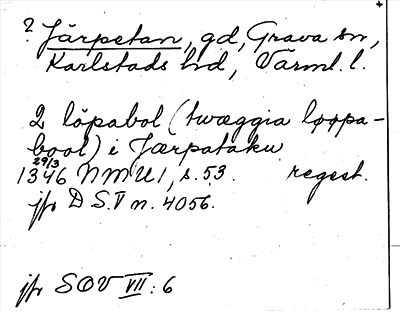 ? Järpetan, gd, Grava sn,
Karlstads hd, Värml. l.
2 löpabol (twæggia løøpa-
bool) i Jærpataku
29/3
1346 NMU1, s. 53. regest.
jfr DS.V n. 4056.
jfr SOV VII: 6